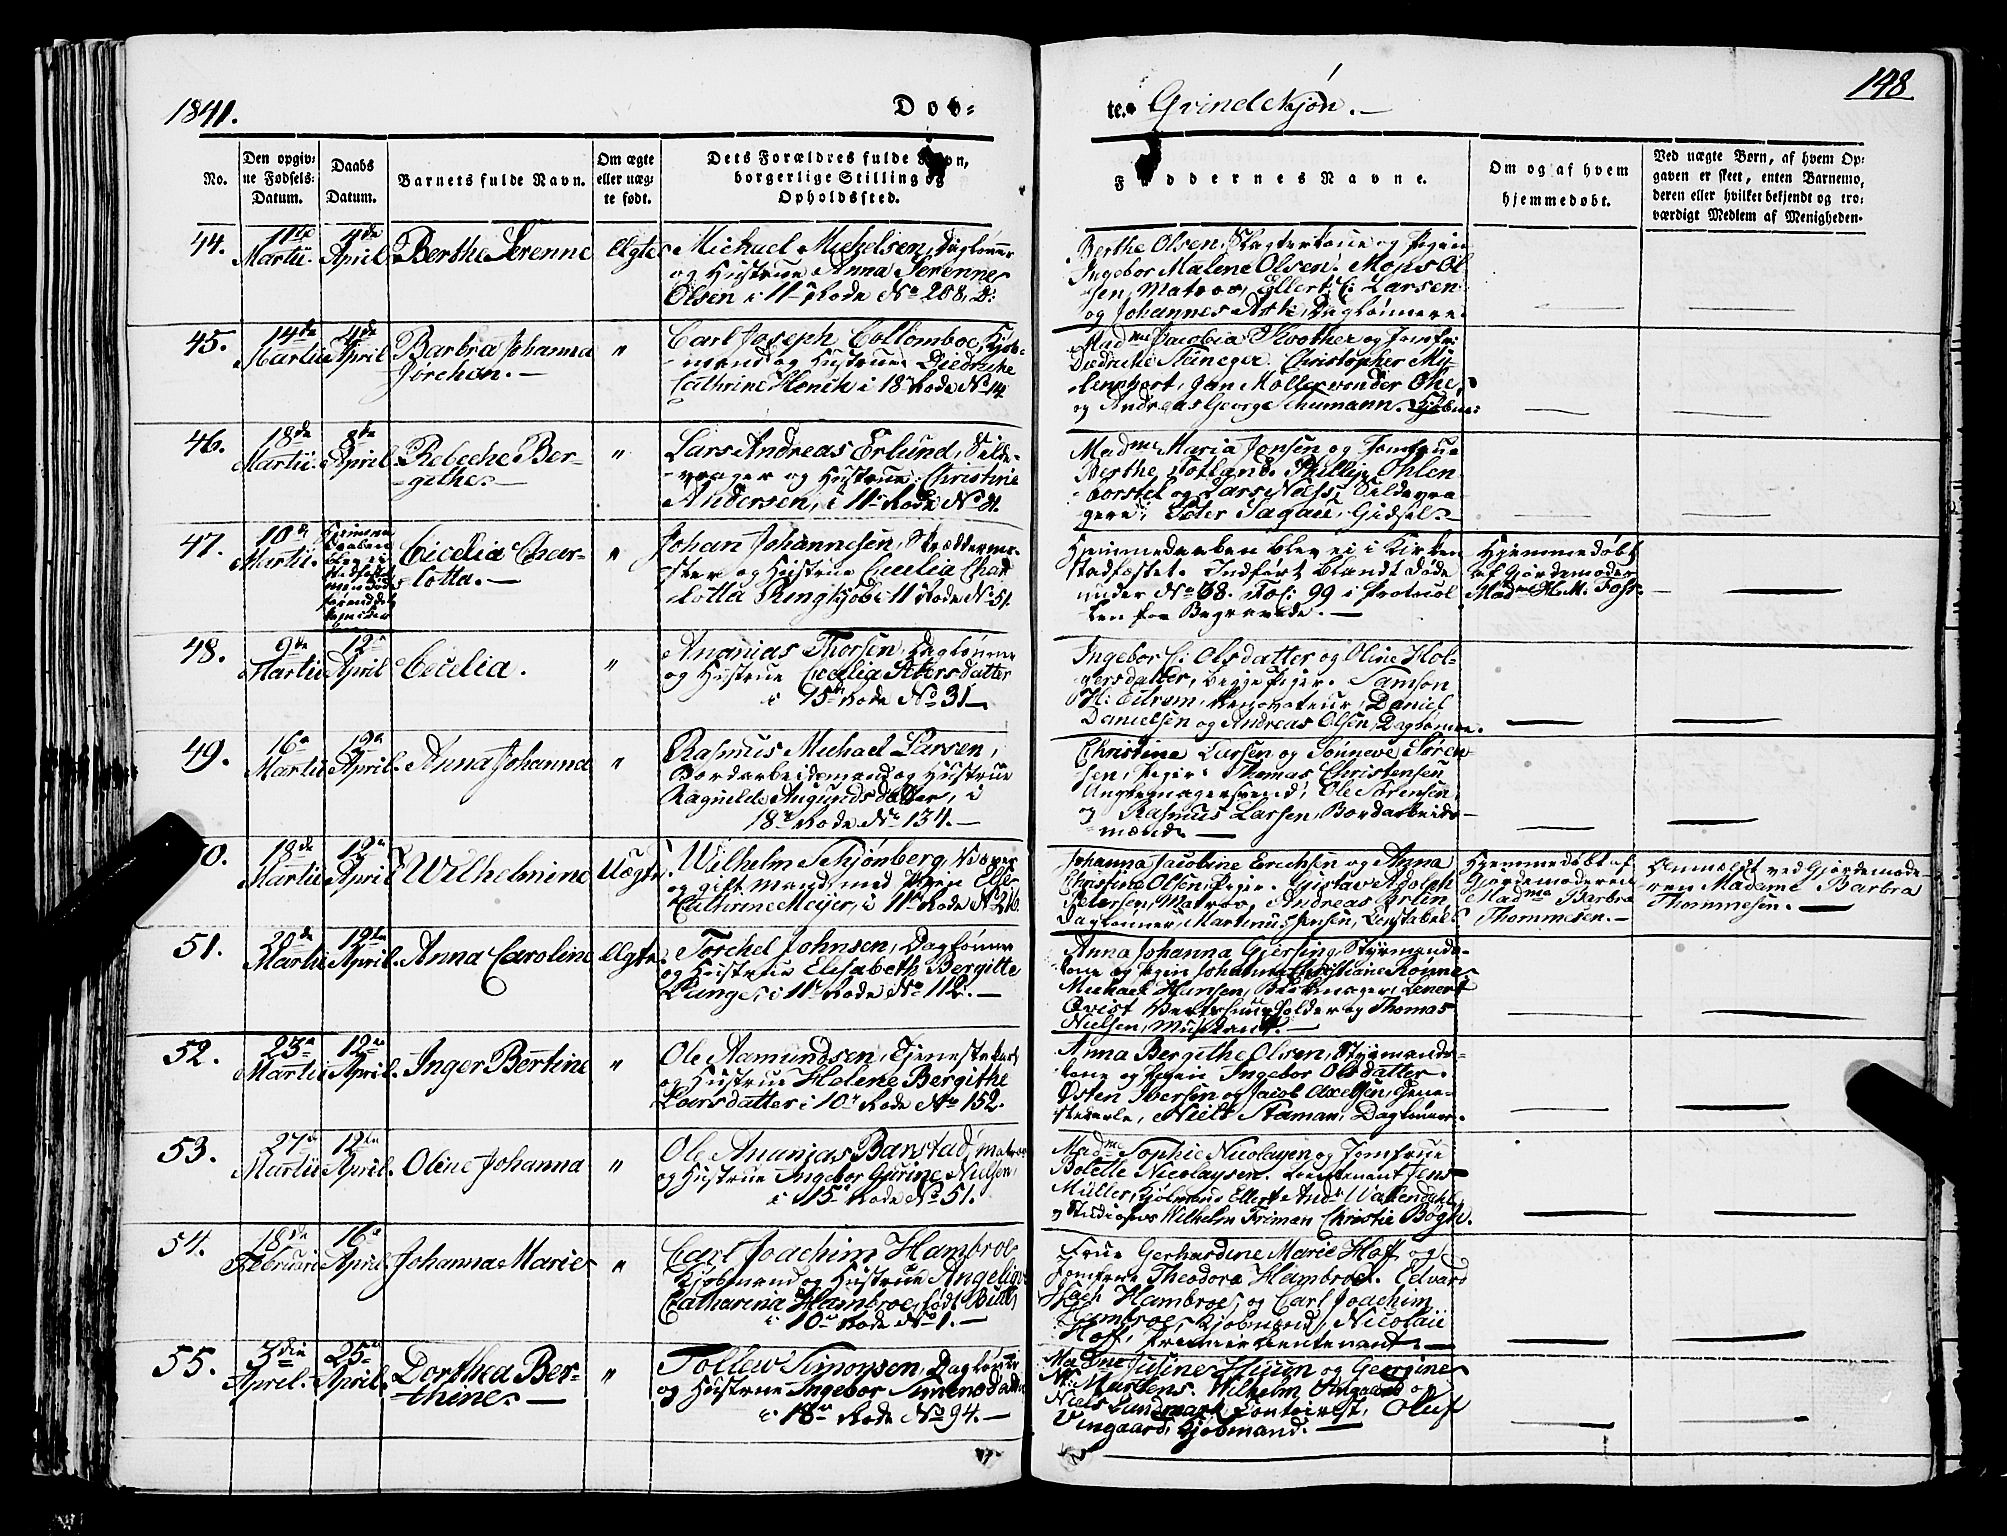 1841.
Døb-
te. Qvindekjøn.
148
No.
Den opgiv-
ne Fødsels-
Datum.
Daabs
Datum.
Barnets fulde Navn.
Om ægte
eller uæg-
te født.
Dets Forældres fulde Navn,
borgerlige Stilling og
Opholdssted.
Faddernes Navne.
Om og af hvem
hjemmedøbt.
Ved uægte Børn, af hvem Op-
gaven er skeet, enten Barnemo-
deren eller hvilket bekjendt og tro-
værdigt Medlem af Menigheden.
44.
11te
Martii.
4de
April
Berthe Serenne
Ægte
Michael Michelsen, Daglønner
og Hustrue Anna Serenne
Olsen i 11 Rode No 208, D:
Berthe Olsen, Slagterkone og Pigen
Ingebor Malene Olsen. Mons Ol-
sen, Matros, Ellert C: Larsen
og Johannes Ask, Daglønnere.
45.
14de
Martii
4de
April
Barbra Johanna
Jörchen.
"
Carl Joseph Collomboe, Kjøb-
mand og Hustrue Diedriche
Cathrine Henich i 18 Rode No 14
Madme Jacobia Woother og Jomfr:
Diedriche Stüneger. Christopher My-
lenphort, Jan Møller vonder Ohe,
og Andreas George Schumann. Kjøbm:
46.
18de
Martii.
8de
April
Rebeche Ber-
githe.
"
Lars Andreas Erlund, Silde-
vrager og Hustrue Christine
Andersen, i 11 Rode No
Madme Maria Jensen og Jomfrue
Berthe Totland. Phillip Ohlen-
borstel og Lars Næss, Silde vra-
gere, Peter Sagau, Gidsel.
47.
10
Martii.
Hjemme
daaben
blev ei
stadfæstet
Cicelia Char-
lotta.
"
Johan Johannesen, Skræddermes-
ster og Hustrue Cecelia Char-
lotta Ringkjøb i 11 Rode No 51.
Hjemmedaaben blev ei i Kirken
stadfæstet. Indført blandt Døde
under No 68. Fol: 99 i Protocol-
len for Begravede.
Hjemmedøbt
af Gjordemoder
Madme H. M. Foss.
48.
9de
Martii
12
April
Cecelia.
"
Ananias Thorsen, Daglønner
og Hustrue Cecelia Petersdatter
i 15 Rode No 31
Ingebor C: Olsdatter og Oline Hol-
gersdatter, begge Piger. Samson
H: Eitrem, Renovateur, Daniel
Danielsen og Andreas Olsen, Daglønnere.
49.
16
Martii
12
April.
Anna Johanna
"
Rasmus Michael Larsen,
Bordarbeidsmand og Hustrue
Ragnilde Augunds datter, i
18 Rode No 134.
Christine Larsen og Sønneve Søren-
sen, Piger. Thomas Christensen
svend, Ole Sørensen
og Rasmus Larsen, Bordarbeids-
mænd
50.
18de
Martii
12
April
Wilhelmine
Uægte
Wilhelm Schjønberg,
og gift mand, med Pigen Else
Cathrine Meijer, i 11 Rode No 216.
Johanna Jacobine Erichsen og Anna
Christine Olsen, Piger. Gustav Adolph
Petersen, Matros, Andreas Erlen,
Daglønner, Martinus Jensen, Constabel
Hjemmedøbt af
Gjordemoderen
Madme Barbra
Thommesen.
Anmeldt ved Gjordemode-
ren Madame Barbra
Thommesen.
51.
20de
Martii
12te
April.
Anna Caroline
Ægte
Torchel Johnsen, Dagløner
og Hustrue Elisabeth Bergitte
Lunge, i 11 Rode No 112.
Anna Johanna Gjersing, Styrmands-
kone og Pigen Johanne Christiane Rønne
Michael Hansen, Blokmager, Lenert
Qvist Vertshuusholder og Thomas
Nielsen, Musikant.
52.
23
Martii
12
April.
Inger Bertine
"
Ole Aamundsen, Tjenestekarl
og Hustrue Helene Bergithe
Larsdatter i 10 Rode No 152.
Anna Bergithe Olsen, Styrmands-
kone og Pigen Ingebor Olsdatter.
Østen Iversen og Jacob Axelsen, Tjene-
stekarle, Niels Staman, Dagløner.
53.
27
Martii
12te
April.
Oline Johanna
"
Ole Ananias Banstad, Matros
og Hustrue Ingebor Gurine Nielsen
i 15 Rode No 51.
Madme Sophie Nicolaysen og Jomfrue
Bolette Nicolaysen. Lieutenant Jens
Müller, Kjøbmand Ellert Andr: Wallendahl
og Studiosus Wilhelm Friman Christie Bøgh.
54.
18de
Februari
16
April.
Johanna Marie
"
Carl Joachim Hambroe
Kjøbmand og Hustrue Angeliqve
Catharina Hambroe, født Bull,
i 10 Rode No 1.
Frue Gerhardine Marie Hoff og
Jomfrue Theodora Hambroe. Edvard
Isach Hambroe, og Carl Joachim
Hambroe, Kjøbmænd, Nicolaii
Hoff, Premier Lieutenant.
55.
3die
April.
25
April.
Dorthea Ber-
thine.
"
Tollew Simonsen, Dagløner
og Hustrue Ingebor Simensdatter
i 18 Rode No 94.
Madme Juline Huun og Georgine
M: Martens. Wilhelm Vingaard og
Niels Lundmark, Contoirist, Oluf
Vingaard, Kjøbmand.